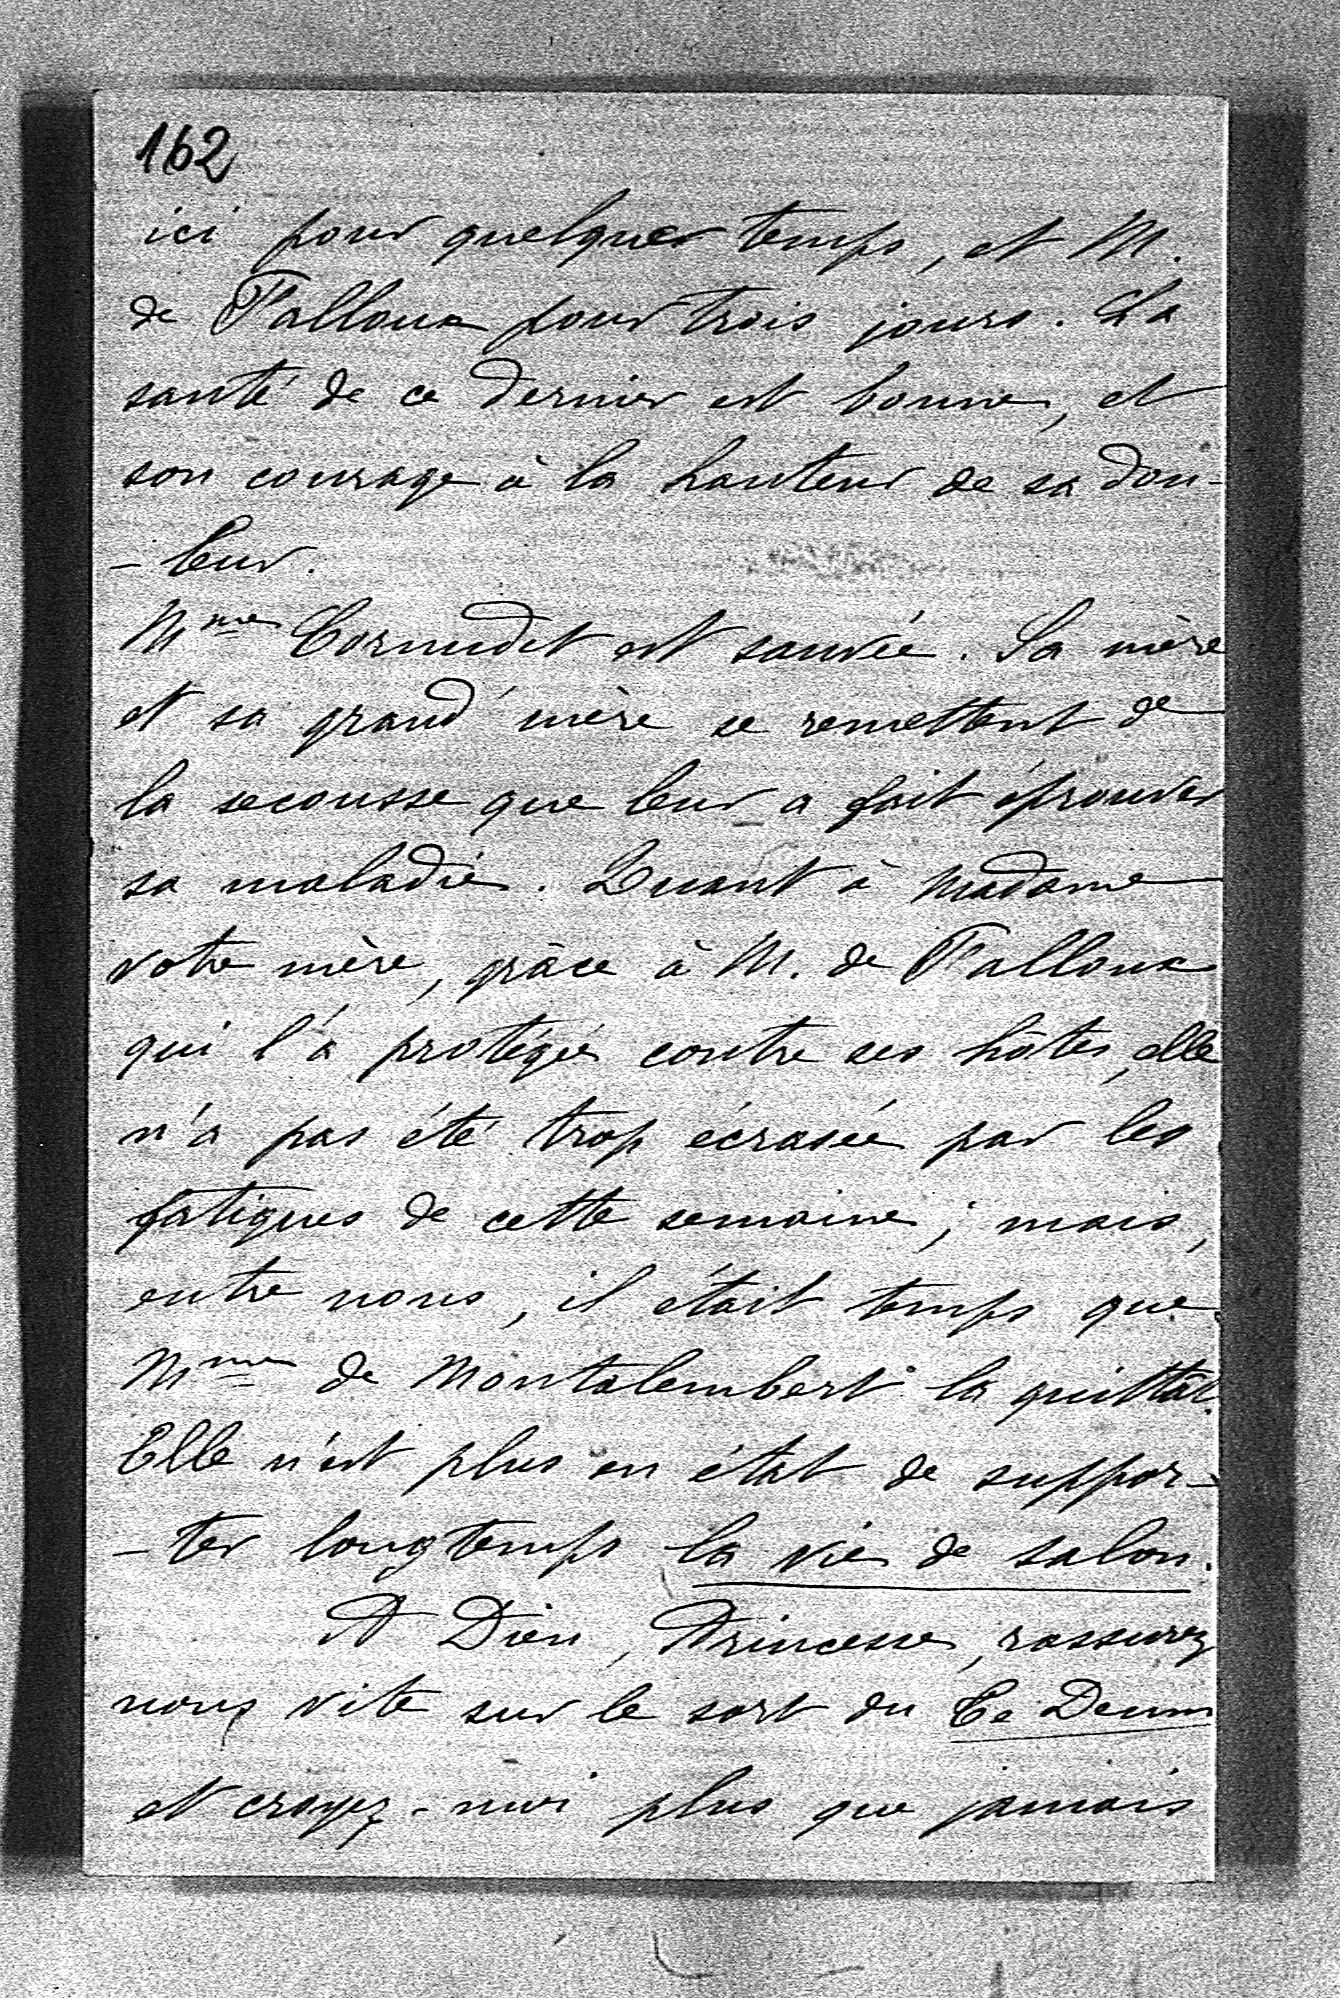 162
ici pour quelques temps, et M.
de Falloux pour trois jours. La
santé de ce dernier est bonne, et
son courage à la hauteur de sa dou-
-leur.
Mme Cornudet est sauvée. Sa mère
et sa grand'mère se remettent de
la secousse que leur a fait éprouver
sa maladie. Quant à madame
votre mère, grâce à M. de Falloux
qui l'a protégée contre ses hôtes, elle
n'a pas été trop écrasée par les
fatigues de cette semaine; mais,
entre nous, il était temps que
Mme de Montalembert la quittât.
Elle n'est plus en état de suppor-
-ter longtemps la vie de salon.
A Dieu, Princesse, rassurez
nous vite sur le sort du Te Deum
et croyez-moi plus que jamais